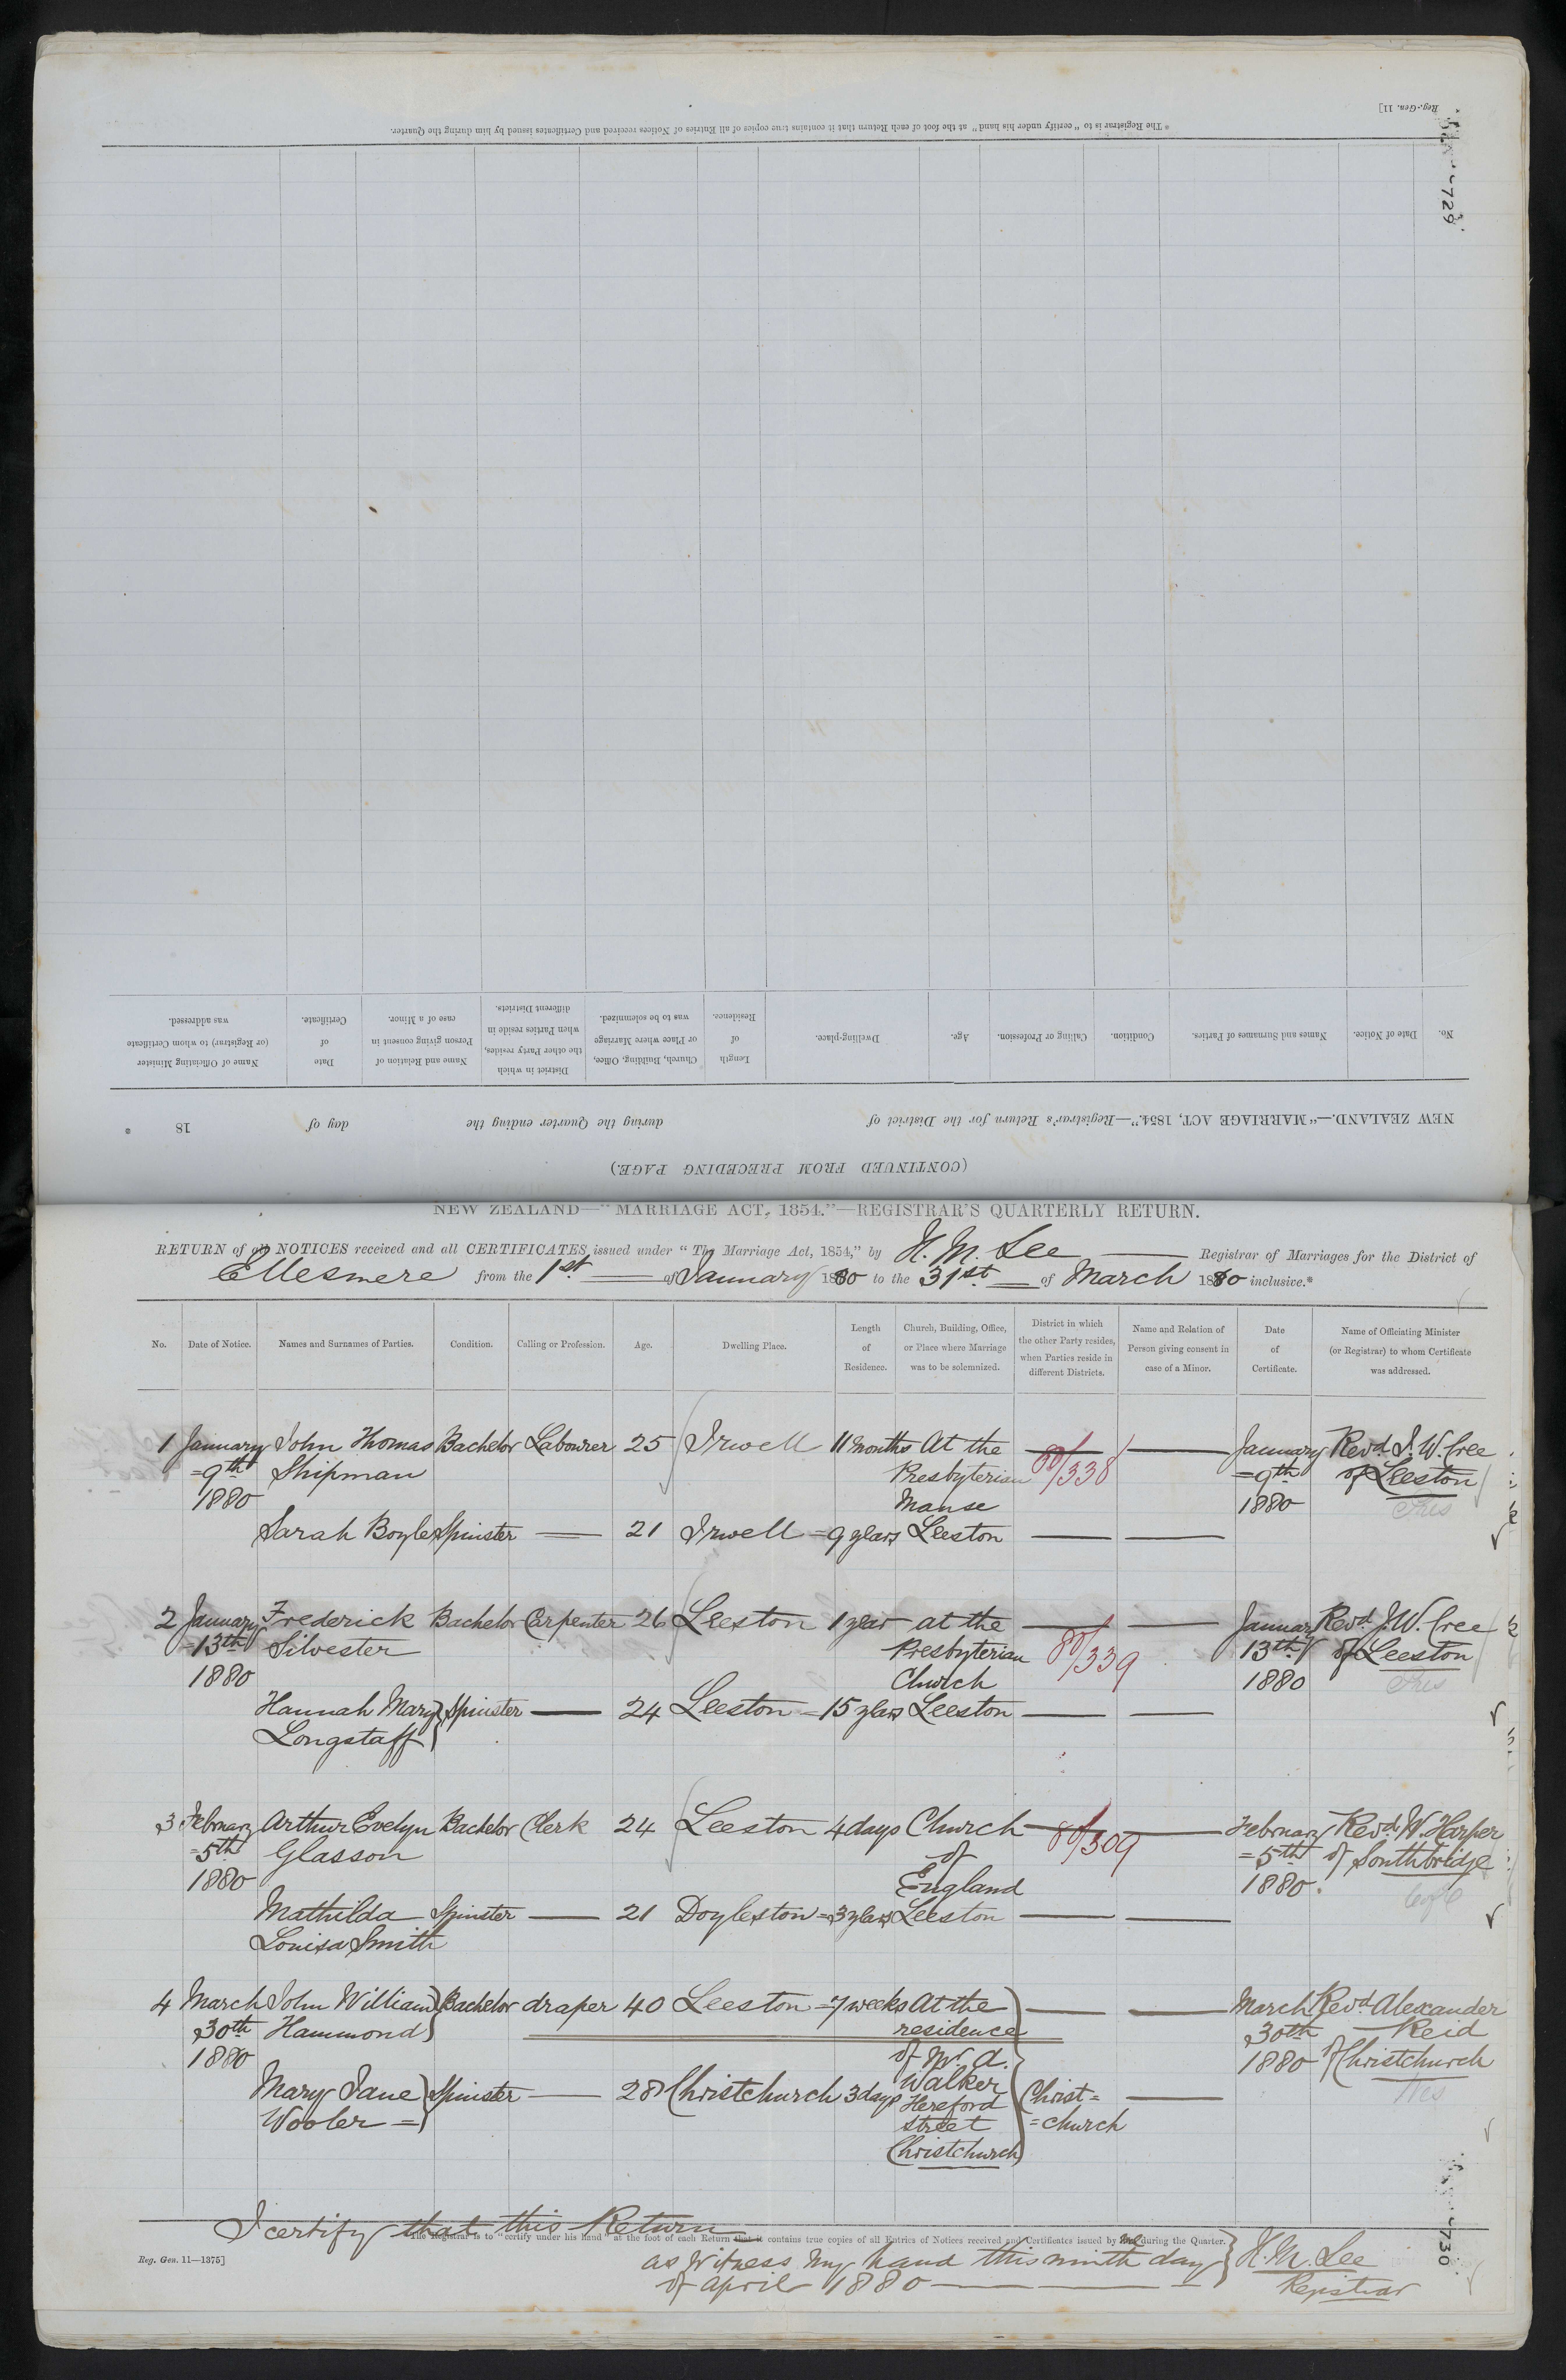 Reg.-Gen. 11]
* The Registrar is to "certify under his hand" at the foot of each Return that it contains true copies of all Entries of Notices received and Certificates issued by him during the Quarter.
729
(CONTINUED FROM PRECEDING PAGE.)
NEW ZEALAND.—"MARRIAGE ACT, 1854."—Registrar's Return for the District of during the Quarter ending the day of 18 *
No. Date of Notice. Names and Surnames of Parties. Condition. Calling or Profession. Age. Dwelling-place. Length of Residence. Church, Building, Office, or Place where Marriage was to be solemnized. District in which the other Party resides, when Parties reside in different Districts. Name and Relation of Person giving consent in case of a Minor. Date of Certificate. Name of Officiating Minister (or Registrar) to whom Certificate was addressed.
NEW ZEALAND—"MARRIAGE ACT, 1854."—REGISTRAR'S QUARTERLY RETURN.
RETURN of all NOTICES received and all CERTIFICATES issued under "The Marriage Act, 1854," by H. M. Lee Registrar of Marriages for the District of
Ellesmere from the 1st of January 1880 to the 31st of March 1880 inclusive.*
No. Date of Notice. Names and Surnames of Parties. Condition. Calling or Profession. Age. Dwelling Place. Length of Residence. Church, Building, Office, or Place where Marriage was to be solemnized. District in which the other Party resides, when Parties reside in different Districts. Name and Relation of Person giving consent in case of a Minor. Date of Certificate. Name of Officiating Minister (or Registrar) to whom Certificate was addressed.
1 January John Thomas Bachelor Labourer 25 Irwell 11 months At the 80/338 January Revd. J. W. Cree
=9th Shipman Presbyterian =9th of Leeston
1880 Manse 1880 Pres
Sarah Boyle Spinster 21 Irwell = 9 years Leeston
2 January Frederick Bachelor Carpenter 26 Leeston 1 year at the 80/339 January Revd. J. W. Cree
=13th Silvester Presbyterian 13th of Leeston
1880 Church 1880 Pres
Hannah Mary Spinster 24 Leeston = 15 years Leeston
Longstaff
3 February Arthur Evelyn Bachelor Clerk 24 Leeston 4 days Church 80/309 February Revd. W. Harper
=5th Glasson of =5th of Southbridge
1880 England 1880. CofE
Mathilda Spinster 21 Doyleston = 3 years Leeston
Louisa Smith
4 March John William Bachelor draper 40 Leeston = 7 weeks At the March Revd Alexander
30th Hammond residence 30th Reid
1880 of Mr. A. 1880 of Christchurch
Walker
Mary Jane Spinster 28 Christchurch 3 days Hereford Christ=
Wooler = street =church
Christchurch
I certify that this Return
* The Registrar is to "certify under his hand" at the foot of each Return that it contains true copies of all Entries of Notices received and Certificates issued by me during the Quarter.
Reg. Gen. 11—1375]
as witness my hand this ninth day H. M. Lee
of April 1880 Registrar
730